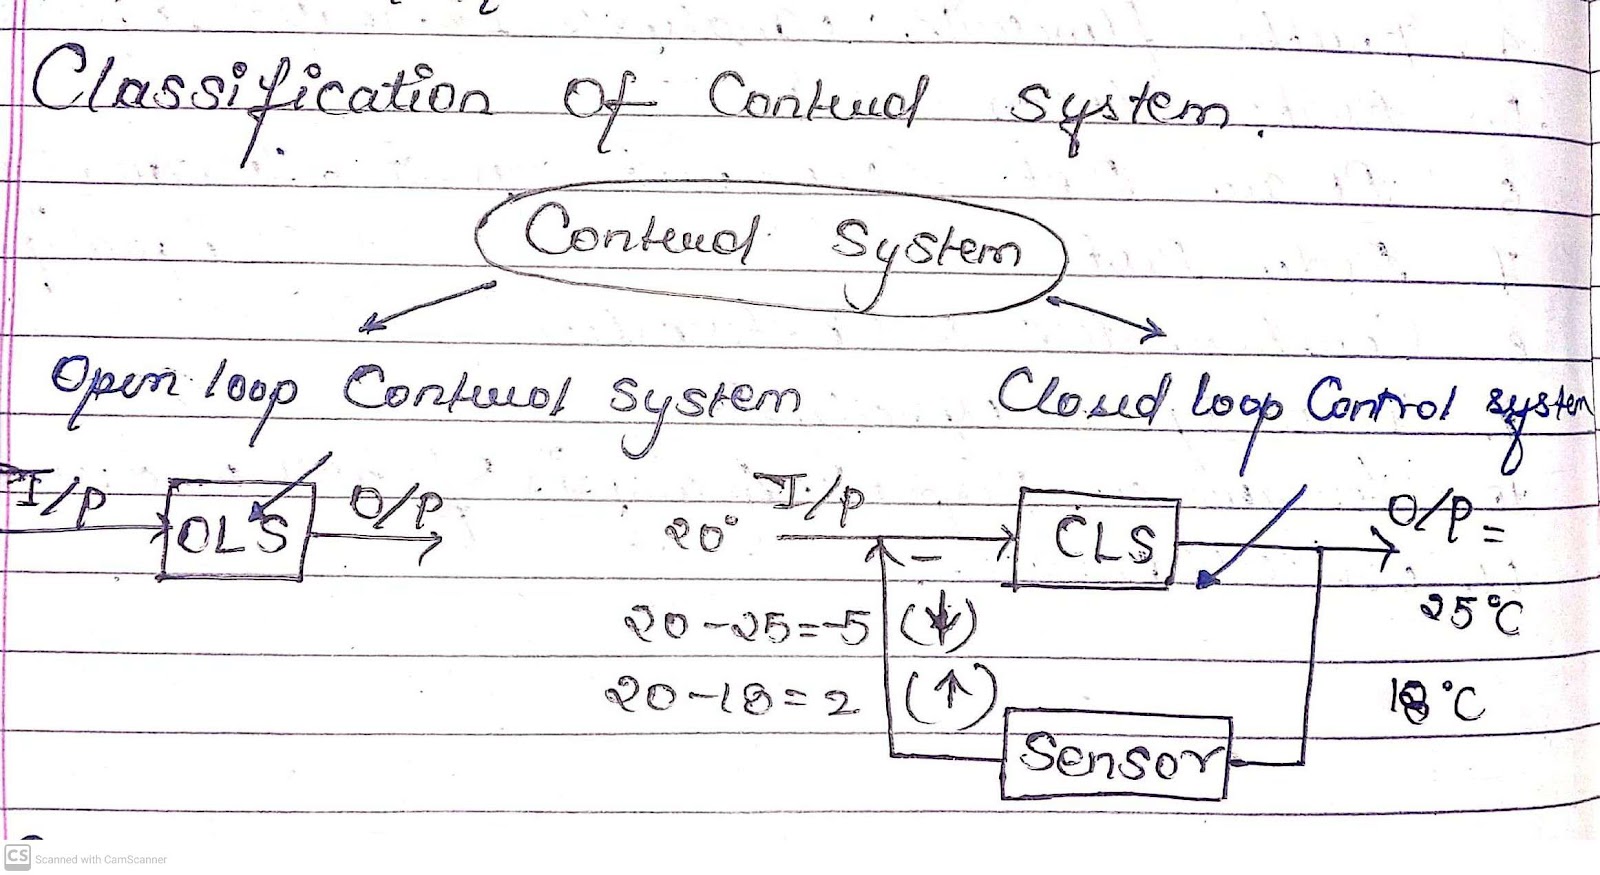 Classification of Control System.
Control System
Open loop Control System
Closed loop Control system
I/p
OLS
O/p
20°
I/p
CLS
O/p =
-
20-25=-5 (↓)
25°C
20-18=2 (↑)
18°C
Sensor
CS Scanned with CamScanner